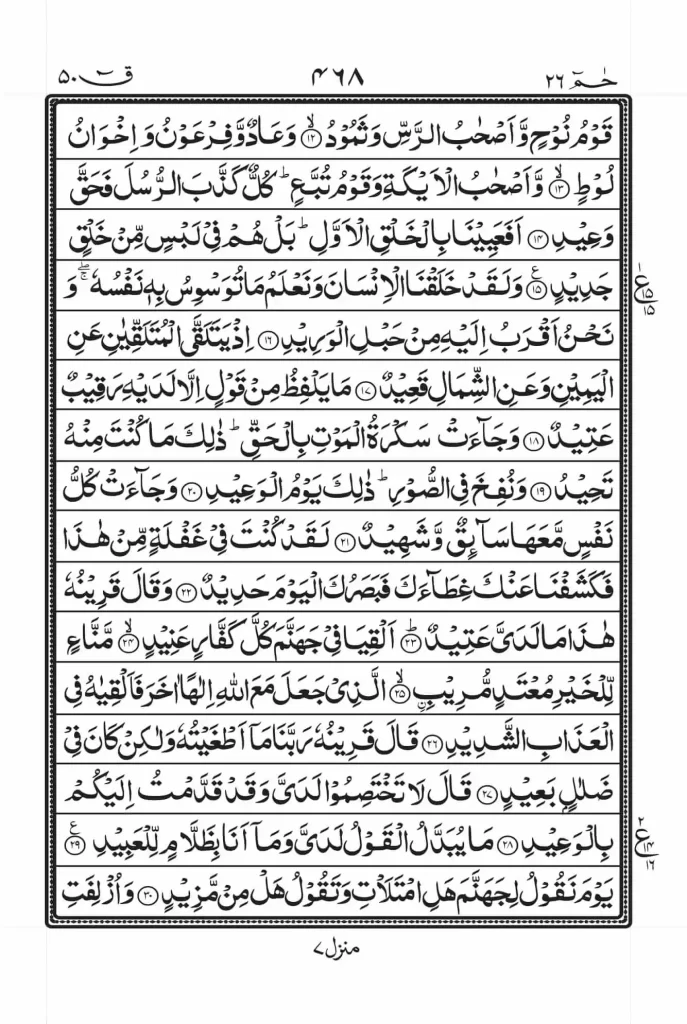 حٰمٓ ٢٦ ٤٦٨ قٓ ٥٠
قَوْمُ نُوْحٍ وَّاَصْحٰبُ الرَّسِّ وَثَمُوْدُ ۙ﴿١٢﴾ وَعَادٌ وَّفِرْعَوْنُ وَاِخْوَانُ
لُوْطٍ ۙ﴿١٣﴾ وَّاَصْحٰبُ الْاَيْكَةِ وَقَوْمُ تُبَّعٍ ؕ كُلٌّ كَذَّبَ الرُّسُلَ فَحَقَّ
وَعِيْدِ ﴿١٤﴾ اَفَعَيِيْنَا بِالْخَلْقِ الْاَوَّلِ ؕ بَلْ هُمْ فِيْ لَبْسٍ مِّنْ خَلْقٍ
جَدِيْدٍ ﴿١٥﴾ ع وَلَقَدْ خَلَقْنَا الْاِنْسَانَ وَنَعْلَمُ مَا تُوَسْوِسُ بِهٖ نَفْسُهٗ ۚۖ وَ
١ ع ١٥ ١٥
نَحْنُ اَقْرَبُ اِلَيْهِ مِنْ حَبْلِ الْوَرِيْدِ ﴿١٦﴾ اِذْ يَتَلَقَّى الْمُتَلَقِّيٰنِ عَنِ
الْيَمِيْنِ وَعَنِ الشِّمَالِ قَعِيْدٌ ﴿١٧﴾ مَا يَلْفِظُ مِنْ قَوْلٍ اِلَّا لَدَيْهِ رَقِيْبٌ
عَتِيْدٌ ﴿١٨﴾ وَجَآءَتْ سَكْرَةُ الْمَوْتِ بِالْحَقِّ ؕ ذٰلِكَ مَا كُنْتَ مِنْهُ
تَحِيْدُ ﴿١٩﴾ وَنُفِخَ فِي الصُّوْرِ ؕ ذٰلِكَ يَوْمُ الْوَعِيْدِ ﴿٢٠﴾ وَجَآءَتْ كُلُّ
نَفْسٍ مَّعَهَا سَآئِقٌ وَّشَهِيْدٌ ﴿٢١﴾ لَقَدْ كُنْتَ فِيْ غَفْلَةٍ مِّنْ هٰذَا
فَكَشَفْنَا عَنْكَ غِطَآءَكَ فَبَصَرُكَ الْيَوْمَ حَدِيْدٌ ﴿٢٢﴾ وَقَالَ قَرِيْنُهٗ
هٰذَا مَا لَدَيَّ عَتِيْدٌ ؕ﴿٢٣﴾ اَلْقِيَا فِيْ جَهَنَّمَ كُلَّ كَفَّارٍ عَنِيْدٍ ۙ﴿٢٤﴾ مَّنَّاعٍ
لِّلْخَيْرِ مُعْتَدٍ مُّرِيْبِ ۙ﴿٢٥﴾ ۨالَّذِيْ جَعَلَ مَعَ اللّٰهِ اِلٰهًا اٰخَرَ فَاَلْقِيٰهُ فِي
الْعَذَابِ الشَّدِيْدِ ﴿٢٦﴾ قَالَ قَرِيْنُهٗ رَبَّنَا مَاۤ اَطْغَيْتُهٗ وَلٰكِنْ كَانَ فِيْ
ضَلٰلٍۭ بَعِيْدٍ ﴿٢٧﴾ قَالَ لَا تَخْتَصِمُوْا لَدَيَّ وَقَدْ قَدَّمْتُ اِلَيْكُمْ
بِالْوَعِيْدِ ﴿٢٨﴾ مَا يُبَدَّلُ الْقَوْلُ لَدَيَّ وَمَاۤ اَنَا بِظَلَّامٍ لِّلْعَبِيْدِ ﴿٢٩﴾ ع
٢ ع ١٤ ١٦
يَوْمَ نَقُوْلُ لِجَهَنَّمَ هَلِ امْتَلَاْتِ وَتَقُوْلُ هَلْ مِنْ مَّزِيْدٍ ﴿٣٠﴾ وَاُزْلِفَتِ
منزل ٧